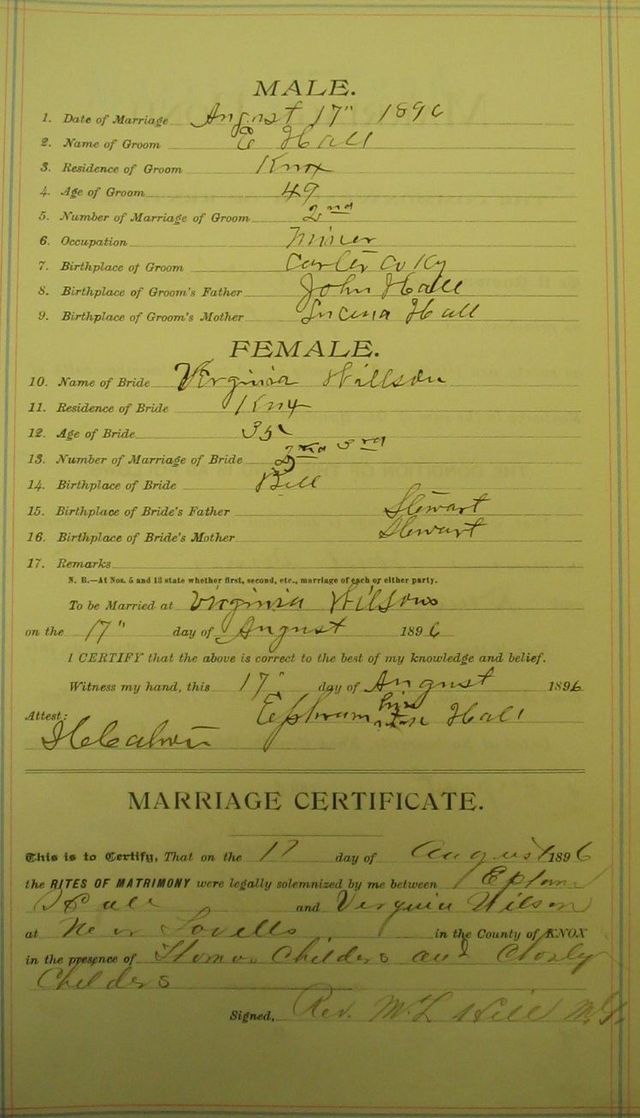 MALE.
1. Date of Marriage August 17" 1896
2. Name of Groom E Hall
3. Residence of Groom Knox
4. Age of Groom 49
5. Number of Marriage of Groom 2nd
6. Occupation Miner
7. Birthplace of Groom Carter Co Ky
8. Birthplace of Groom's Father John Hall
9. Birthplace of Groom's Mother Hall
FEMALE.
10. Name of Bride Virginia Willson
11. Residence of Bride Knox
12. Age of Bride 35
13. Number of Marriage of Bride 3rd
14. Birthplace of Bride Bell
15. Birthplace of Bride's Father Stewart
16. Birthplace of Bride's Mother Stewart
17. Remarks
N. B.—At Nos. 5 and 13 state whether first, second, etc., marriage of each or either party.
To be Married at Virginia Wilsons
on the 17" day of August 1896
I CERTIFY that the above is correct to the best of my knowledge and belief.
Witness my hand, this 17" day of August 1896
Ephraim his Hall
Attest:
MARRIAGE CERTIFICATE.
This is to Certify, That on the 17 day of August 1896
the RITES OF MATRIMONY were legally solemnized by me between
Hall and Verginia Wilson
at Near Lovells in the County of KNOX
in the presence of Childers and
Childers
Signed, Rev. M. L Hill